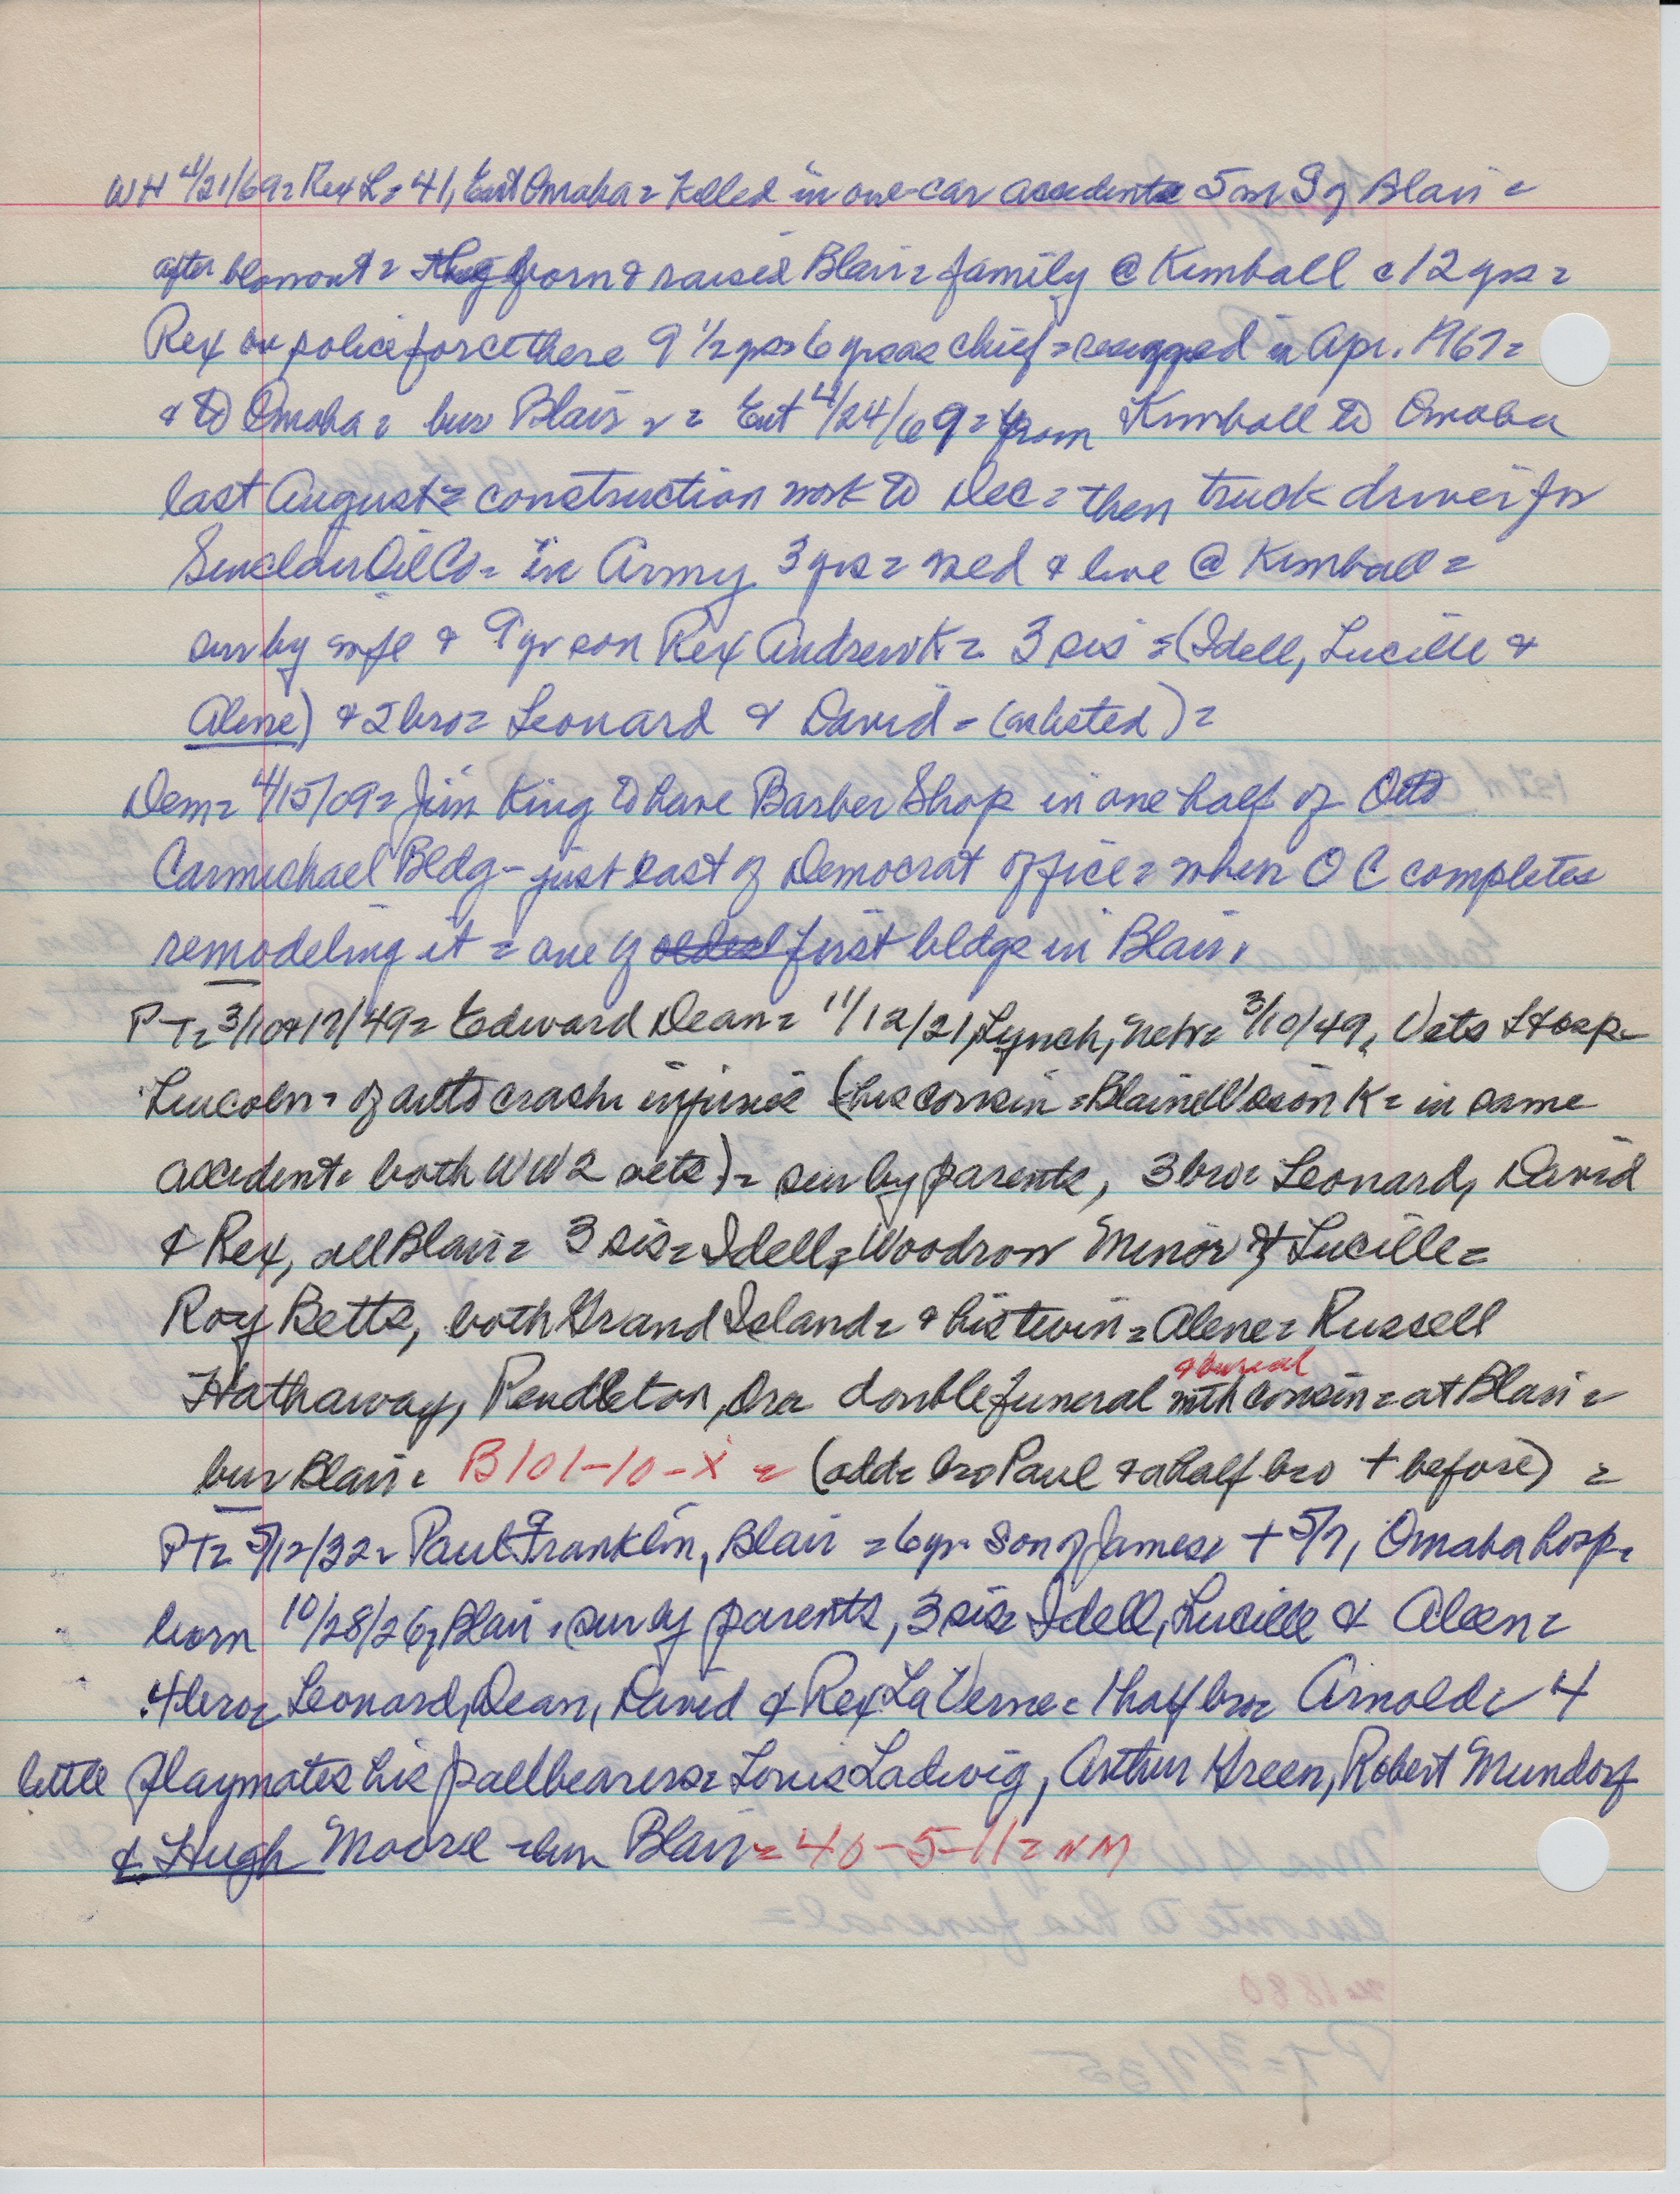 WH 4/21/69= Rex L= 41, East Omaha= Killed in one-car accident= 5 mi S of Blair =
after blowout = born & raised Blair= family @ Kimball c 12 yrs =
Rex on police force there 9 1/2 yrs= 6 yrs as chief = resigned in Apr. 1967=
& to Omaha = bur Blair = Ent 4/24/69= from Kimball to Omaha
last August= construction work to Dec = then truck driver for
Sinclair Oil Co= in Army 3 yrs = wed & live @ Kimball =
sur by wife & 9 yr son Rex Andrew K= 3 sis =(Idell, Lucille &
Alene) & 2 bro= Leonard & David - (as listed) =
Dem= 4/15/09= Jim King to have Barber Shop in one half of Otto
Carmichael Bldg - just east of Democrat office = when O C completes
remodeling it = one of oldest first bldgs in Blair.
PT= 3/10&17/49= Edward Dean= 11/12/21, Lynch, Nebr= 3/10/49, Vets Hosp=
Lincoln= of auto crash injuries (his cousin =Blaine K= in same
accident= both WW2 vets)= sur by parents, 3 bro= Leonard, David
& Rex, all Blair= 3 sis= Idell= Woodrow Minor & Lucille=
Roy Betts, both Grand Island= & his twin = Alene= Russell
Hathaway, Pendleton, Ore= double funeral & burial with cousin = at Blair =
bur Blair= B101-10-X = (add= bro Paul & a half bro + before) =
PT= 5/12/32= Paul Franklin, Blair =6 yr son of James= + 5/7, Omaha hosp=
born 10/28/26, Blair = sur by parents, 3 sis= Idell, Lucille & Aleen=
4 bro= Leonard, Dean, David & Rex LaVerne= 1 half bro= Arnold= 4
little playmates his pallbearers= Louis Ladwig, Arthur Green, Robert Mundorf
& Hugh Moore =bur Blair= 40-5-11= NM